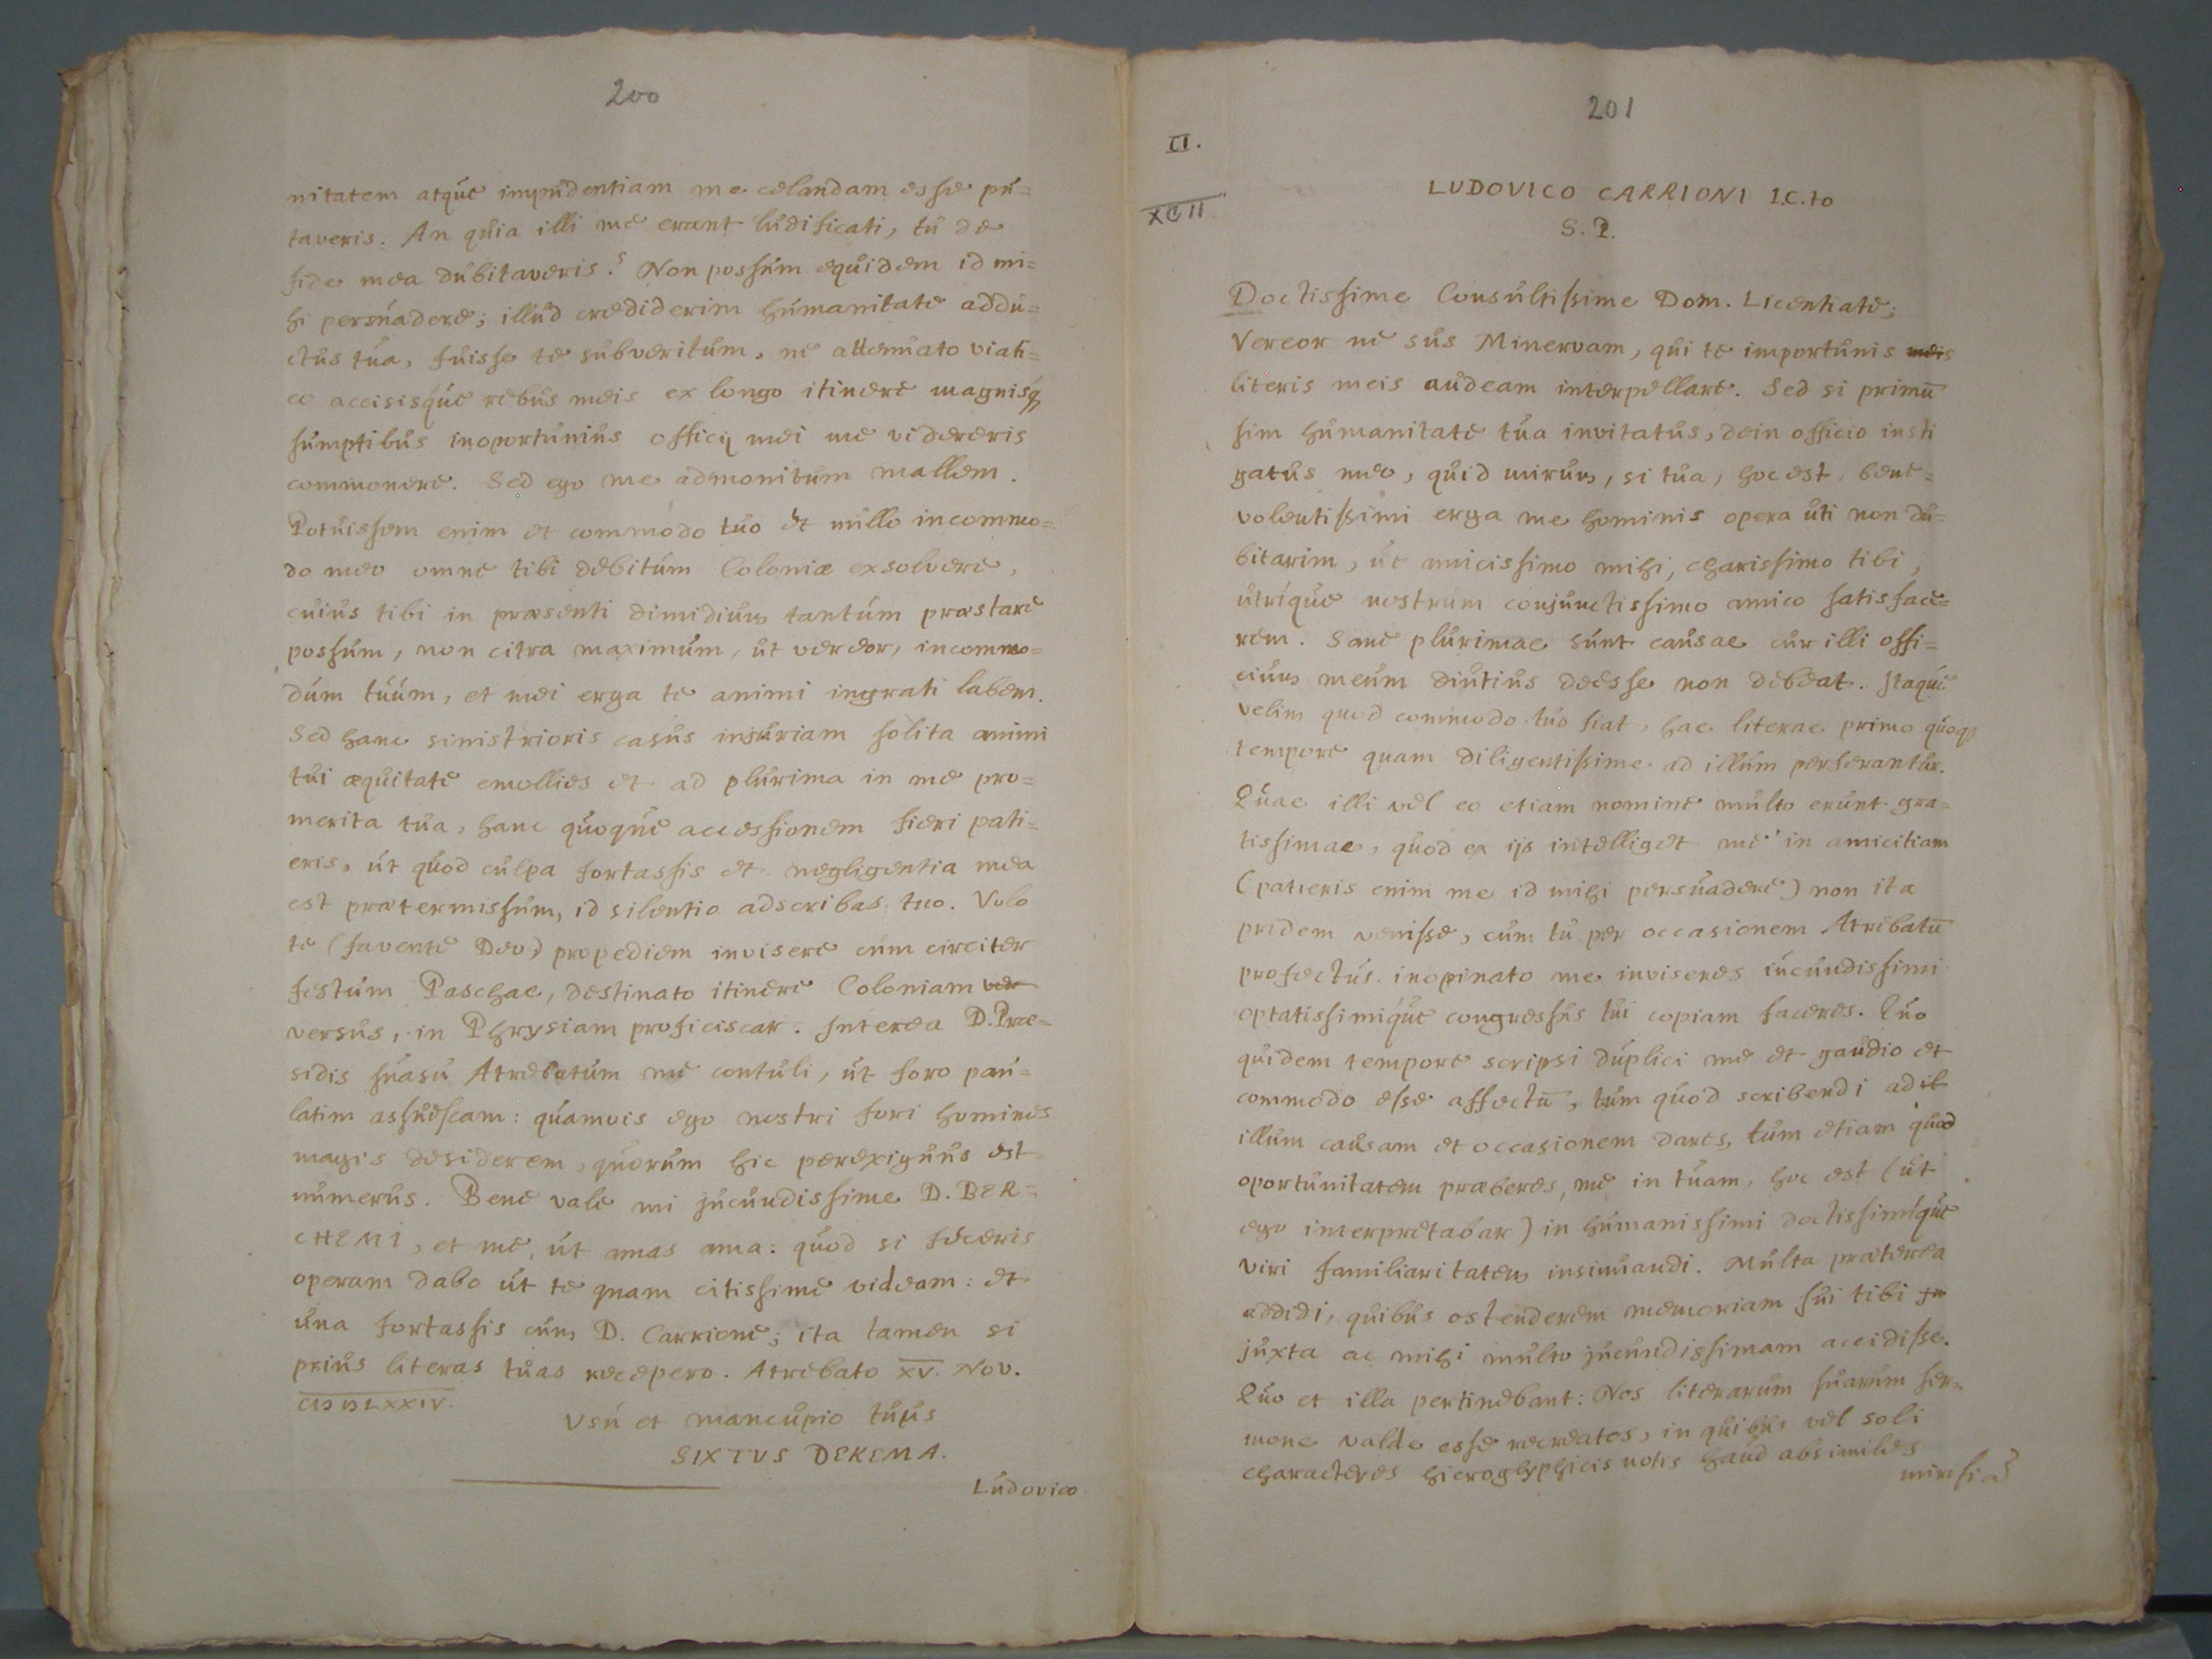 200
nitatem atque impudentiam me celandam esse pu=
taveris. An quia illi me erant ludificati, tu de
fide mea dubitaveris? Non possum equidem id mi=
hi persuadere; illud crediderim humanitate addu=
ctus tua, fuisse te subveritum, ne attenuato viati=
co accisisque rebus meis ex longo itinere magnisq
sumptibus inoportunius officij mei me videreris
commonere. Sed ego me admonitum mallem.
Potuissem enim et commodo tuo et nullo incommo=
do meo omne tibi debitum Coloniæ exsolvere,
cuius tibi in præsenti dimidium tantum præstare
possum, non citra maximum, ut vereor, incommo=
dum tuum, et mei erga te animi ingrati labem.
Sed hanc sinistrioris casus injuriam solita animi
tui æquitate emollies et ad plurima in me pro=
merita tua, hanc quoque accessionem fieri pati=
eris, ut quod culpa fortassis et negligentia mea
est prætermissum, id silentio adscribas tuo. Volo
te (favente Deo) propediem invisere cum circiter
festum Paschae, destinato itinere Coloniam
versus, in Phrysiam proficiscar. Interea D. Præ=
sidis suasu Atrebatum me contuli, ut foro pau=
latim assuescam: quamvis ego nostri fori homines
magis desiderem, quorum hic perexiguus est
numerus. Bene vale mi jucundissime D. BER=
CHEMI, et me, ut amas ama: quod si feceris
operam dabo ut te quam citissime videam: et
una fortassis cum D. Carrione; ita tamen si
prius literas tuas recepero. Atrebato XV. Nov.
CIƆ IƆ LXXIV.
Usu et mancupio tuus
SIXTVS DEKEMA.
Ludovico
201
CI.
XCII
LUDOVICO CARRIONI I.C.to
S. P.
Doctissime Consultissime Dom. Licentiate;
Vereor ne sus Minervam, qui te importunis meis
literis meis audeam interpellare. Sed si primū
sim humanitate tua invitatus, dein officio insti
gatus meo, quid mirum, si tua, hoc est, bene=
volentissimi erga me hominis opera uti non du=
bitarim, ut amicissimo mihi, charissimo tibi,
utrique nostrum conjunctissimo amico satisface=
rem. Sane plurimae sunt causae cur illi offi=
cium meum diutius deesse non debeat. Itaque
velim quod commodo tuo fiat, hae literae primo quoq
tempore quam diligentissime ad illum perferantur.
Quae illi vel eo etiam nomine multo erunt gra=
tissimae, quod ex ijs intelliget me in amicitiam
(patieris enim me id mihi persuadere) non ita
pridem venisse, cum tu per occasionem Atrebatū
profectus inopinato me inviseres iucundissimi
optatissimique congressus tui copiam faceres. Quo
quidem tempore scripsi duplici me et gaudio et
commodo esse affectū, tum quod scribendi ad
illum causam et occasionem dares, tum etiam quod
oportunitatem præberes, me in tuam, hoc est (ut
ego interpretabar) in humanissimi doctissimique
viri familiaritatem insinuandi. Multa præterea
addidi, quibus ostenderem memoriam sui tibi
juxta ac mihi multo jucundissimam accidisse.
Quo et illa pertinebant: Nos literarum suarum ser=
mone valde esse recreatos, in quibus vel soli
characteres hieroglyphicis notis haud absimiles